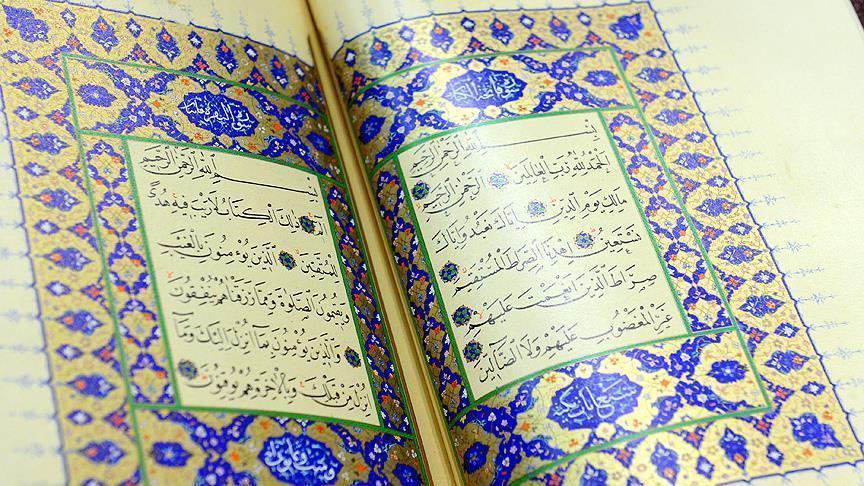 سورة فاتحة الكتاب
بِسْمِ اللهِ الرَّحْمٰنِ الرَّحِيمِ
اَلْحَمْدُ لِلّٰهِ رَبِّ الْعَالَمِينَ الرَّحْمٰنِ الرَّحِيمِ
مَالِكِ يَوْمِ الدِّينِ اِيَّاكَ نَعْبُدُ وَاِيَّاكَ
نَسْتَعِينُ اِهْدِنَا الصِّرَاطَ الْمُسْتَقِيمَ
صِرَاطَ الَّذِينَ اَنْعَمْتَ عَلَيْهِمْ
غَيْرِ الْمَغْضُوبِ عَلَيْهِمْ وَلَا الضَّالِّينَ
سورة البقرة مائتا
بِسْمِ اللهِ الرَّحْمٰنِ الرَّحِيمِ
الٓمٓ ذٰلِكَ الْكِتَابُ لَا رَيْبَ فِيهِ هُدًى
لِلْمُتَّقِينَ الَّذِينَ يُؤْمِنُونَ بِالْغَيْبِ
وَيُقِيمُونَ الصَّلٰوةَ وَمِمَّا رَزَقْنَاهُمْ يُنْفِقُونَ
وَالَّذِينَ يُؤْمِنُونَ بِمَا اُنْزِلَ اِلَيْكَ وَمَا
اُنْزِلَ مِنْ قَبْلِكَ وَبِالْاٰخِرَةِ هُمْ يُوقِنُونَ